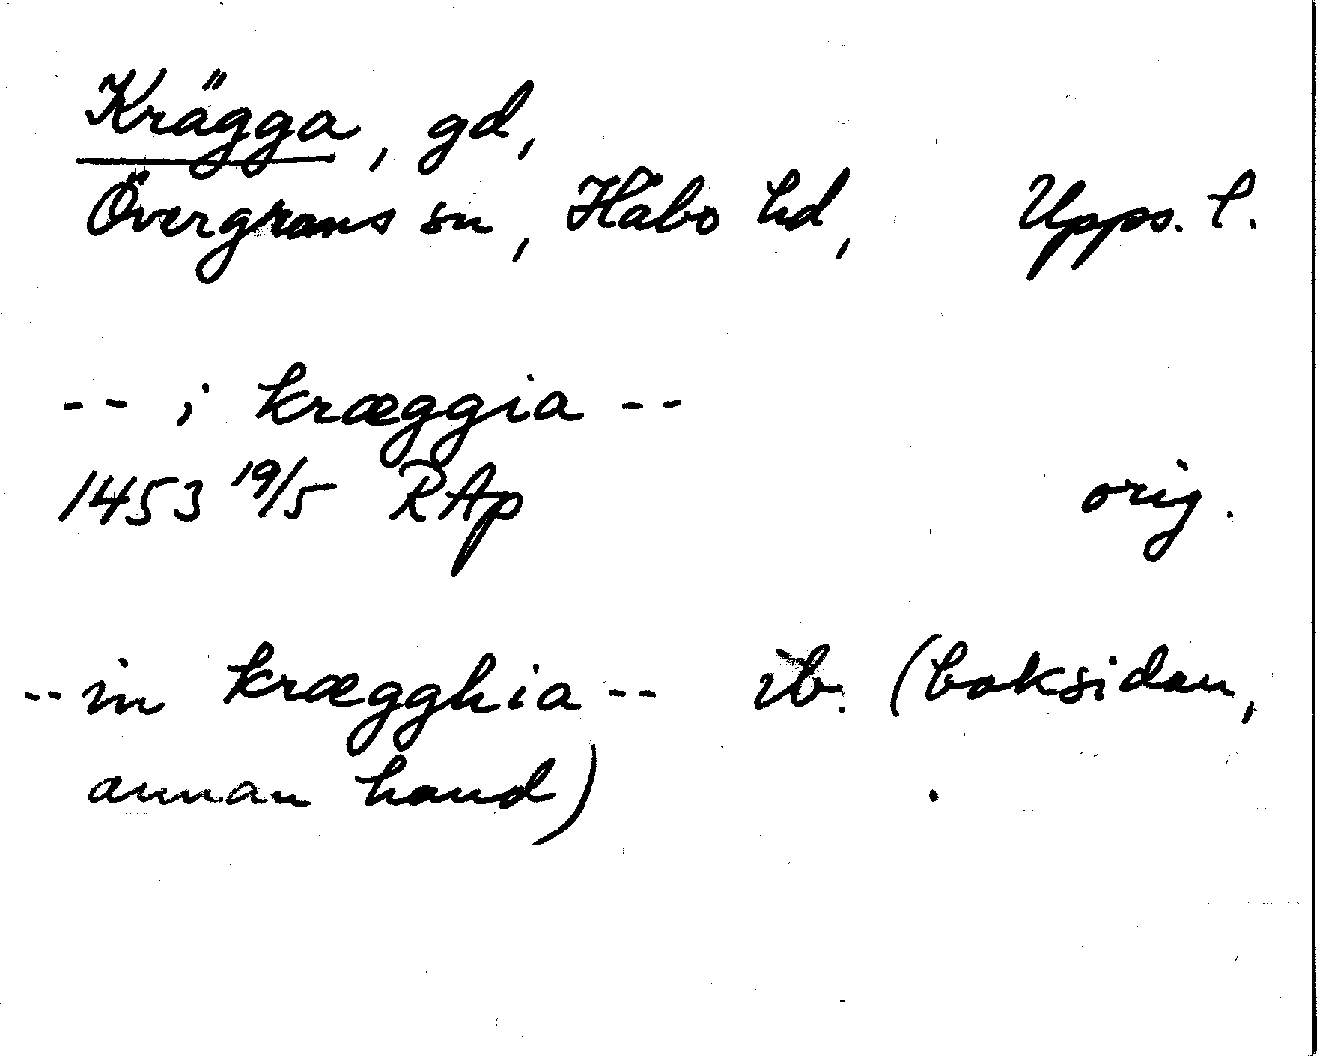 Krägga, gd,
Övergrans sn, Håbo hd, Upps. l.
-- i kræggia --
1453 19/5 RAp orig.
-- in krægghia -- ib. (baksidan,
annan hand)